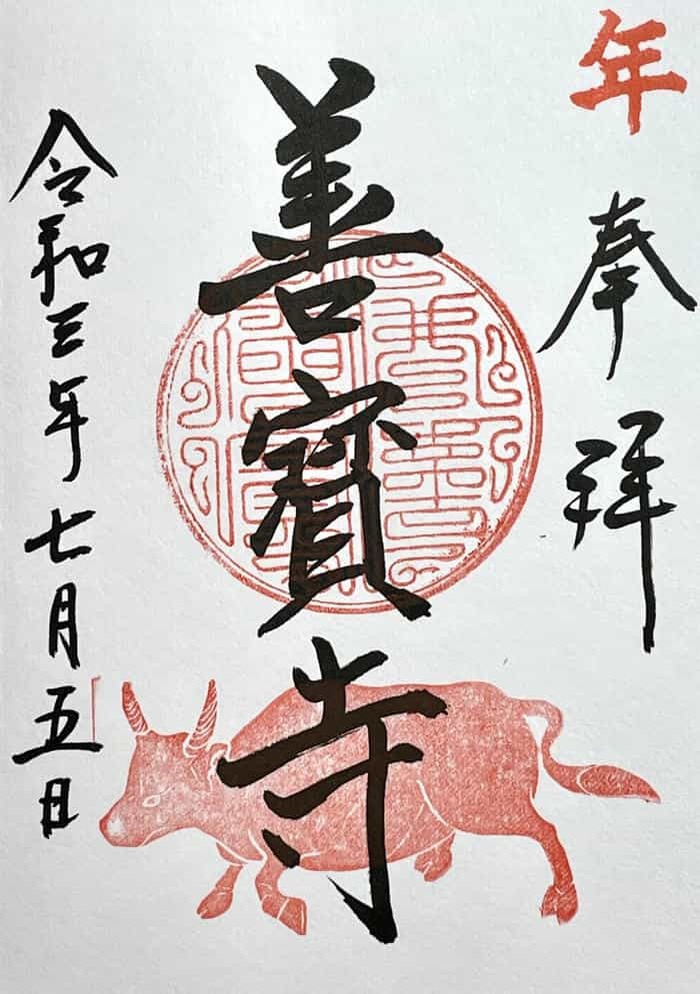 年
奉拝
善寳寺
令和三年七月五日